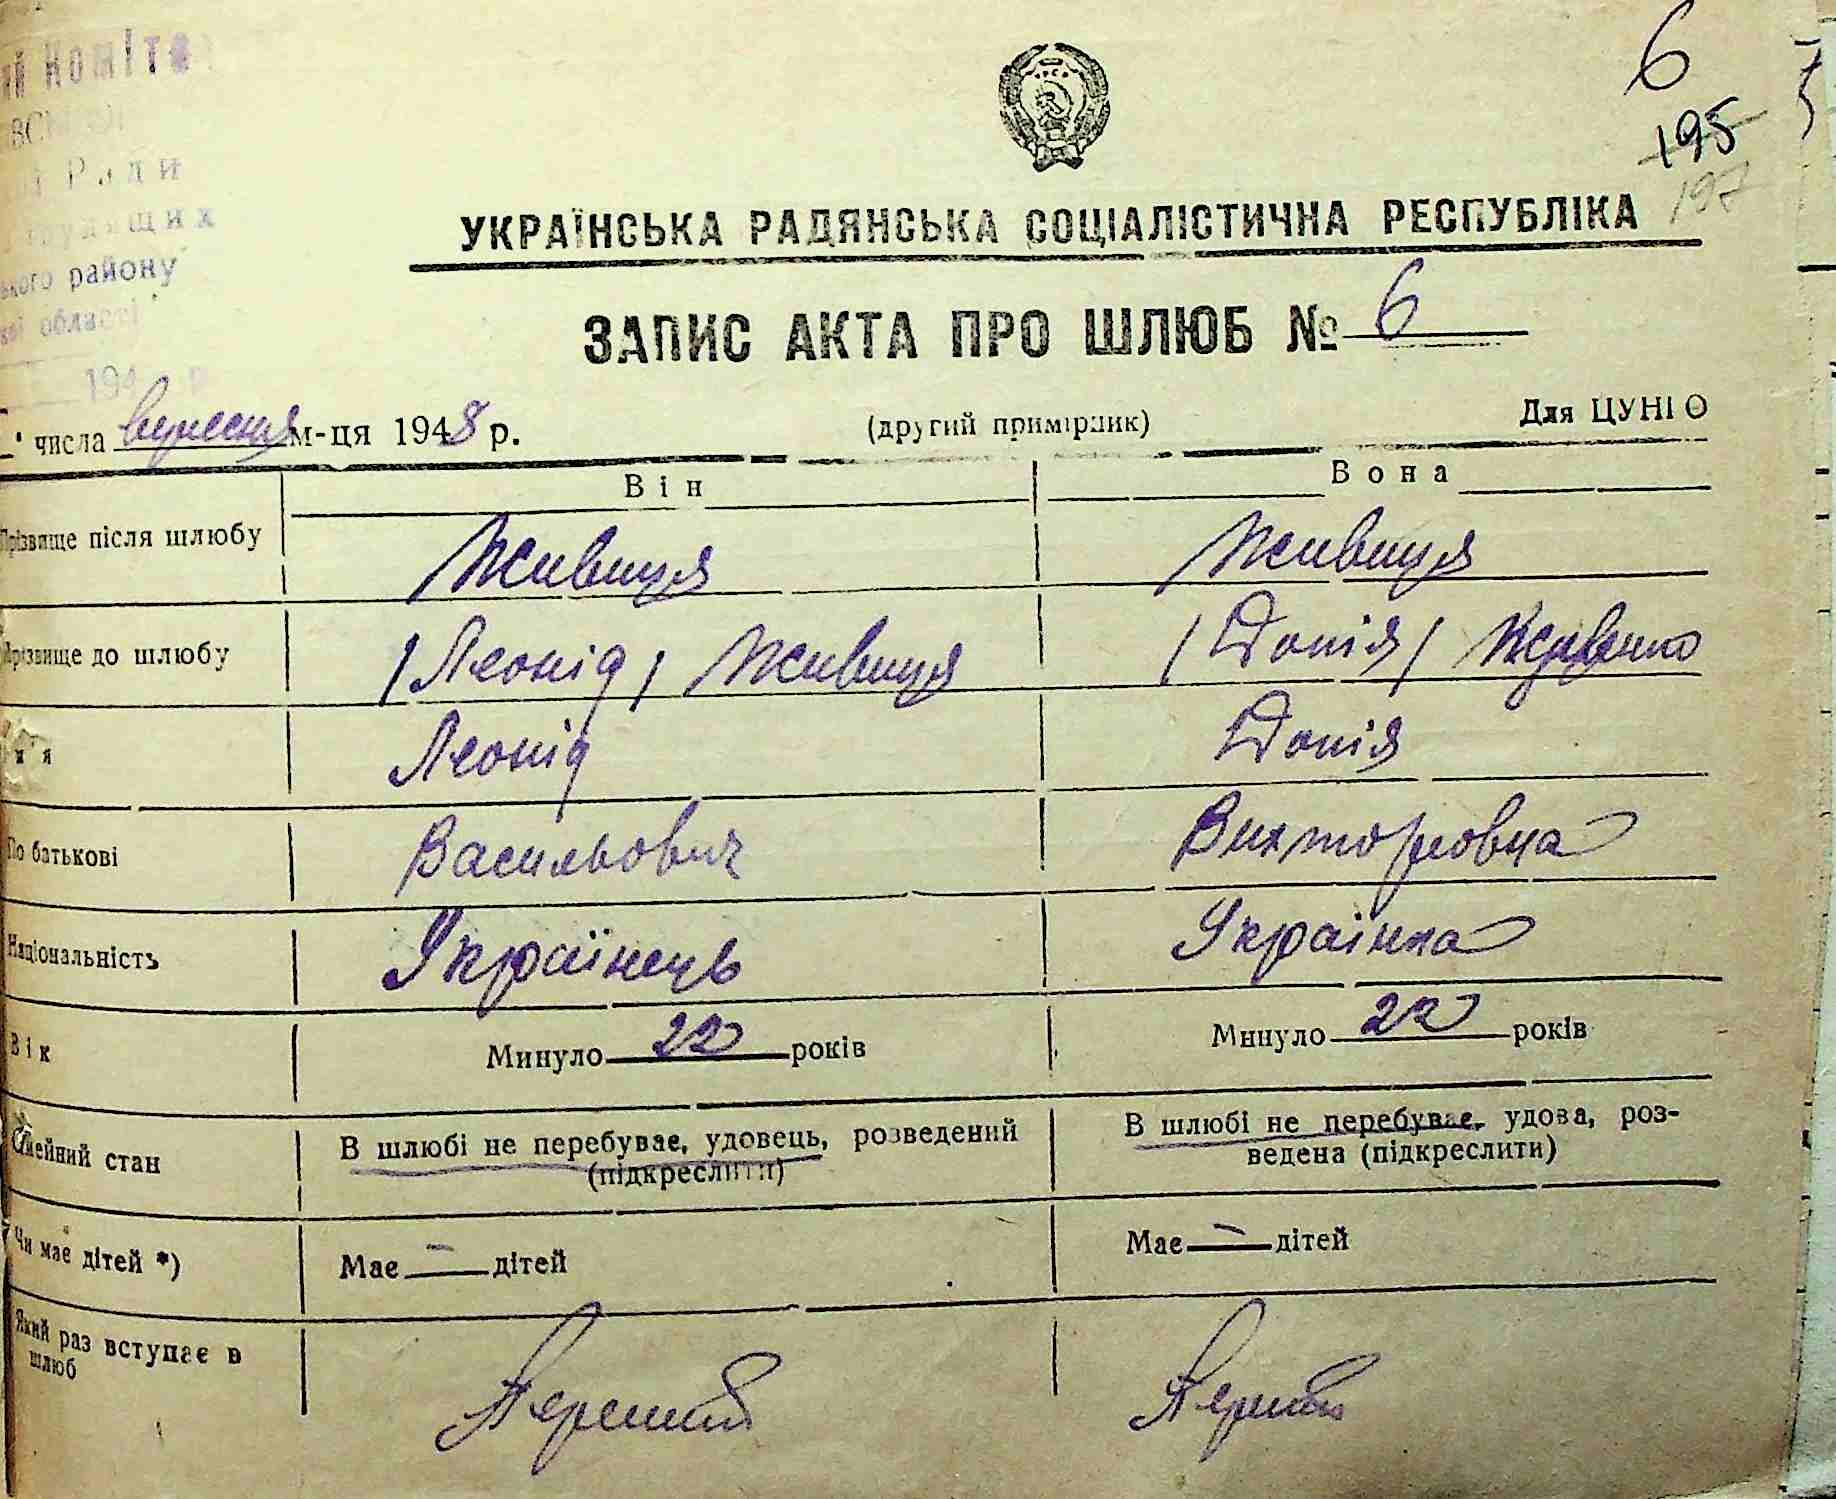 6
195
197
Коміте
Ради
трудящих
ького району
області
194 р
УКРАЇНСЬКА РАДЯНСЬКА СОЦІАЛІСТИЧНА РЕСПУБЛІКА
ЗАПИС АКТА ПРО ШЛЮБ № 6
числа вересня м-ця 1948 р.
(другий примірник)
Для ЦУНІО
Він
Вона
Прізвище після шлюбу
Живиця
Живиця
Прізвище до шлюбу
/Леонід/ Живиця
/Донія/
Леонід
Донія
По батькові
Васильович
Вихторовна
Національність
Українець
Українка
Вік
Минуло 22 років
Минуло 22 років
Сімейний стан
В шлюбі не перебуває, удовець, розведений
(підкреслити)
В шлюбі не перебуває, удова, роз-
ведена (підкреслити)
Чи має дітей *)
Має — дітей
Має — дітей
Який раз вступає в
шлюб
Перший
Перший